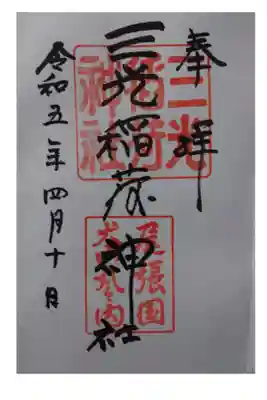 奉拝
三光稲荷神社
令和五年四月十日
三光
稲荷
神社
尾張国
犬山城内